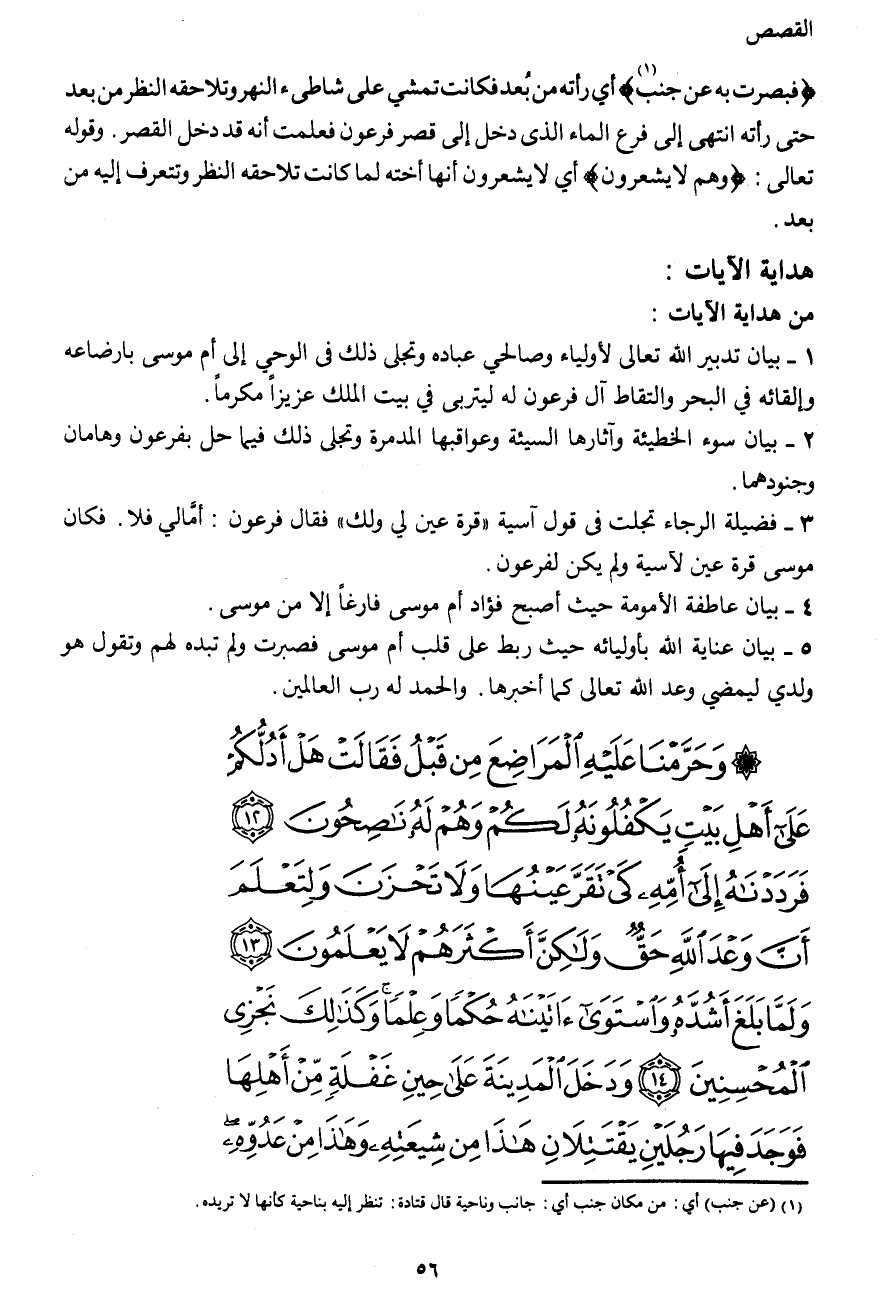 القصص
﴿فبصرت به عن جنب(١)﴾ أي رأته من بُعد فكانت تمشي على شاطىء النهر وتلاحقه النظر من بعد
حتى رأته انتهى إلى فرع الماء الذى دخل إلى قصر فرعون فعلمت أنه قد دخل القصر. وقوله
تعالى : ﴿وهم لا يشعرون﴾ أي لا يشعرون أنها أخته لما كانت تلاحقه النظر وتتعرف إليه من
بعد .
هداية الآيات :
من هداية الآيات :
١ ـ بيان تدبير الله تعالى لأولياء وصالحي عباده وتجلى ذلك فى الوحي إلى أم موسى بارضاعه
وإلقائه في البحر والتقاط آل فرعون له ليتربى في بيت الملك عزيزاً مكرماً.
٢ ـ بيان سوء الخطيئة وآثارها السيئة وعواقبها المدمرة وتجلى ذلك فيما حل بفرعون وهامان
وجنودهما.
٣ ـ فضيلة الرجاء تجلت فى قول آسية «قرة عين لي ولك» فقال فرعون : أمَّالي فلا. فكان
موسى قرة عين لآسية ولم يكن لفرعون .
٤ ـ بيان عاطفة الأمومة حيث أصبح فؤاد أم موسى فارغاً إلا من موسى .
٥ ـ بيان عناية الله بأوليائه حيث ربط على قلب أم موسى فصبرت ولم تبده لهم وتقول هو
ولدي ليمضي وعد الله تعالى كما أخبرها. والحمد له رب العالمين.
۞ وَحَرَّمْنَا عَلَيْهِ ٱلْمَرَاضِعَ مِن قَبْلُ فَقَالَتْ هَلْ أَدُلُّكُمْ
عَلَىٰٓ أَهْلِ بَيْتٍ يَكْفُلُونَهُۥ لَكُمْ وَهُمْ لَهُۥ نَٰصِحُونَ ١٢
فَرَدَدْنَٰهُ إِلَىٰٓ أُمِّهِۦ كَىْ تَقَرَّ عَيْنُهَا وَلَا تَحْزَنَ وَلِتَعْلَمَ
أَنَّ وَعْدَ ٱللَّهِ حَقٌّ وَلَٰكِنَّ أَكْثَرَهُمْ لَا يَعْلَمُونَ ١٣
وَلَمَّا بَلَغَ أَشُدَّهُۥ وَٱسْتَوَىٰٓ ءَاتَيْنَٰهُ حُكْمًا وَعِلْمًا ۚ وَكَذَٰلِكَ نَجْزِى
ٱلْمُحْسِنِينَ ١٤ وَدَخَلَ ٱلْمَدِينَةَ عَلَىٰ حِينِ غَفْلَةٍ مِّنْ أَهْلِهَا
فَوَجَدَ فِيهَا رَجُلَيْنِ يَقْتَتِلَانِ هَٰذَا مِن شِيعَتِهِۦ وَهَٰذَا مِنْ عَدُوِّهِۦ ۖ
(١) (عن جنب) أي : من مكان جنب أي : جانب وناحية قال قتادة : تنظر إليه بناحية كأنها لا تريده .
٥٦